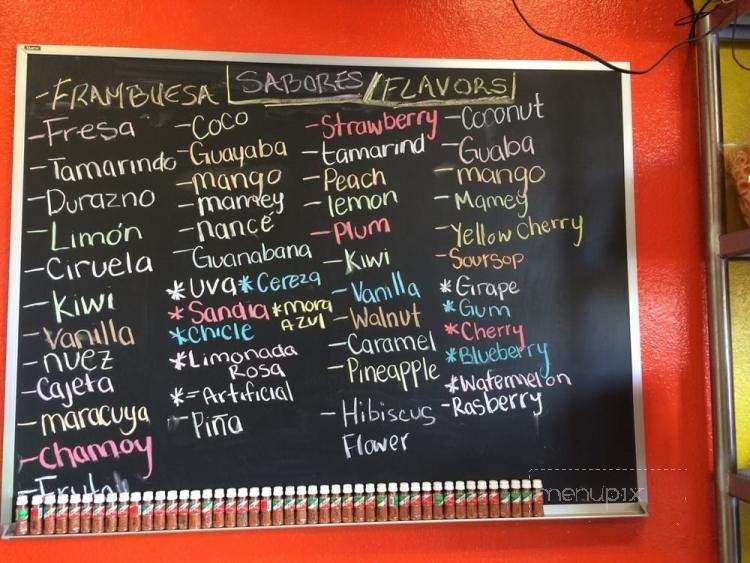 SABORES / FLAVORS
- FRAMBUESA
- Fresa
- Tamarindo
- Durazno
- Limón
- Ciruela
- Kiwi
- Vanilla
- nuez
- Cajeta
- maracuya
- Chamoy
- Coco
- Guayaba
- mango
- mamey
- nancé
- Guanabana
* UVA * Cereza
* Sandia * mora
AZUL
* Chicle
* Limonada
Rosa
* = Artificial
- Piña
- Strawberry
- tamarind
- Peach
- lemon
- Plum
- Kiwi
- Vanilla
- Walnut
- Caramel
- Pineapple
- Hibiscus
Flower
- Coconut
- Guaba
- mango
- Mamey
- Yellow Cherry
- Soursop
* Girape
* Gum
* Cherry
* Blueberry
* Watermelon
- Rasberry
menupix